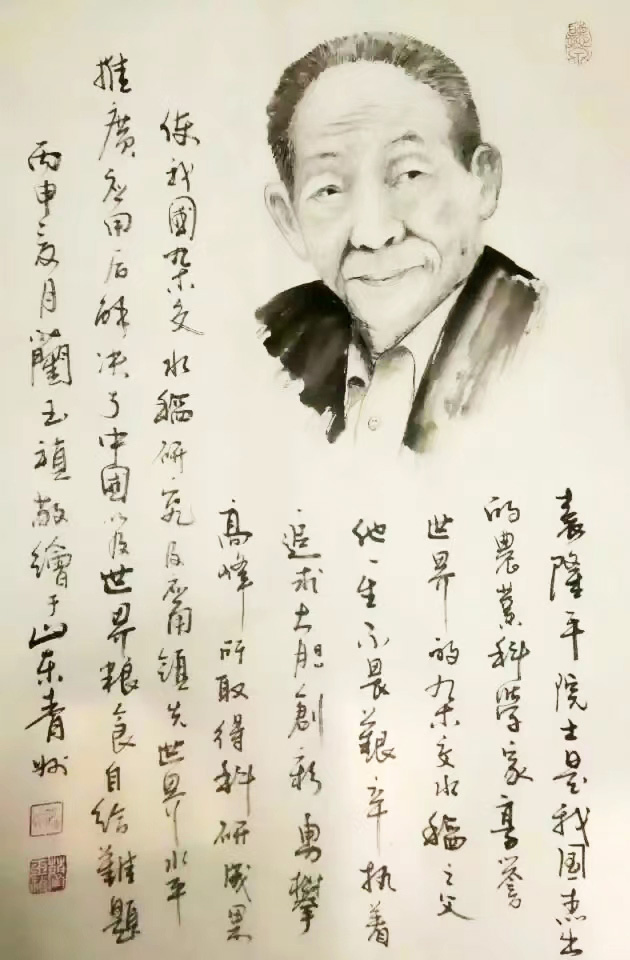 袁隆平院士是我国杰出
的農業科學家享誉
世界的杂交水稻之父
他一生不畏艱辛执着
追求大胆創新勇攀
高峰所取得科研成果
使我國杂交水稻研究及应用領先世界水平
推廣应用后解决了中國以及世界粮食自给難題
丙申夏月藺玉禎敬繪于山东青州